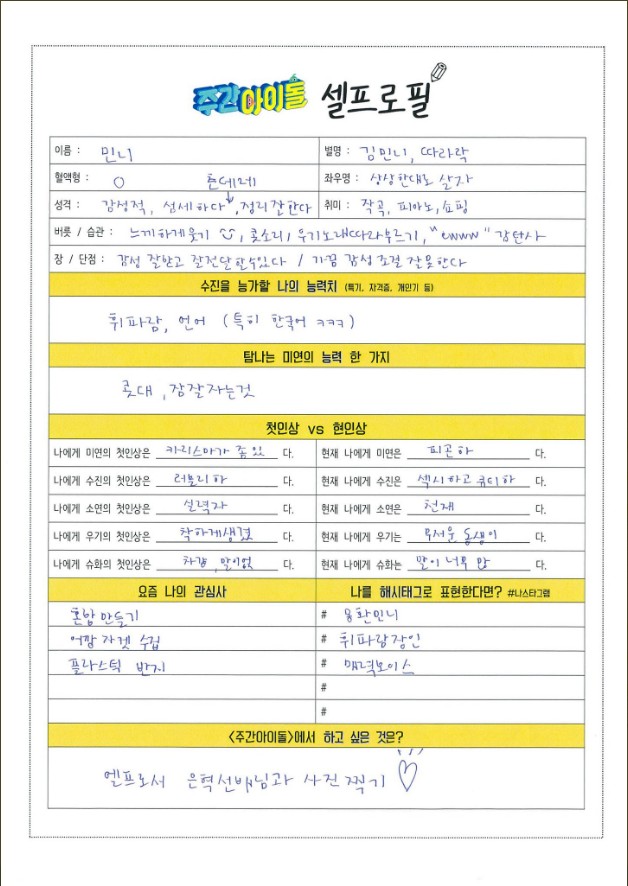 주간아이돌 셀프로필
이름 : 민니 별명 : 김민니, 따라락
혈액형 : O 좌우명 : 상상한대로 살자
츤데레
성격 : 감성적, 섬세하다, 정리 잘한다 취미 : 작곡, 피아노, 쇼핑
버릇 / 습관 : 느끼하게 웃기, 콧소리, 우기노래따라부르기, "ewww" 감탄사
장 / 단점 : 감성 잘받고 잘전달할수있다 / 가끔 감성 조절 잘못한다
수진을 능가할 나의 능력치 (특기, 자격증, 개인기 등)
휘파람, 언어 (특히 한국어 ㅋㅋㅋ)
탐나는 미연의 능력 한 가지
콧대, 잠잘자는것
첫인상 vs 현인상
나에게 미연의 첫인상은 카리스마가 좀 있 다. 현재 나에게 미연은 피곤하 다.
나에게 수진의 첫인상은 러블리하 다. 현재 나에게 수진은 섹시하고 큐티하 다.
나에게 소연의 첫인상은 실력자 다. 현재 나에게 소연은 천재 다.
나에게 우기의 첫인상은 착하게생겼 다. 현재 나에게 우기는 무서운 동생이 다.
나에게 슈화의 첫인상은 차갑, 말이없 다. 현재 나에게 슈화는 말이 너무 많 다.
요즘 나의 관심사 나를 해시태그로 표현한다면? #나스타그램
혼밥 만들기 # 몽환민니
어깜 자켓 수집 # 휘파람장인
플라스틱 반지 # 매력보이스
#
#
<주간아이돌>에서 하고 싶은 것은?
엘프로서 은혁선배님과 사진 찍기